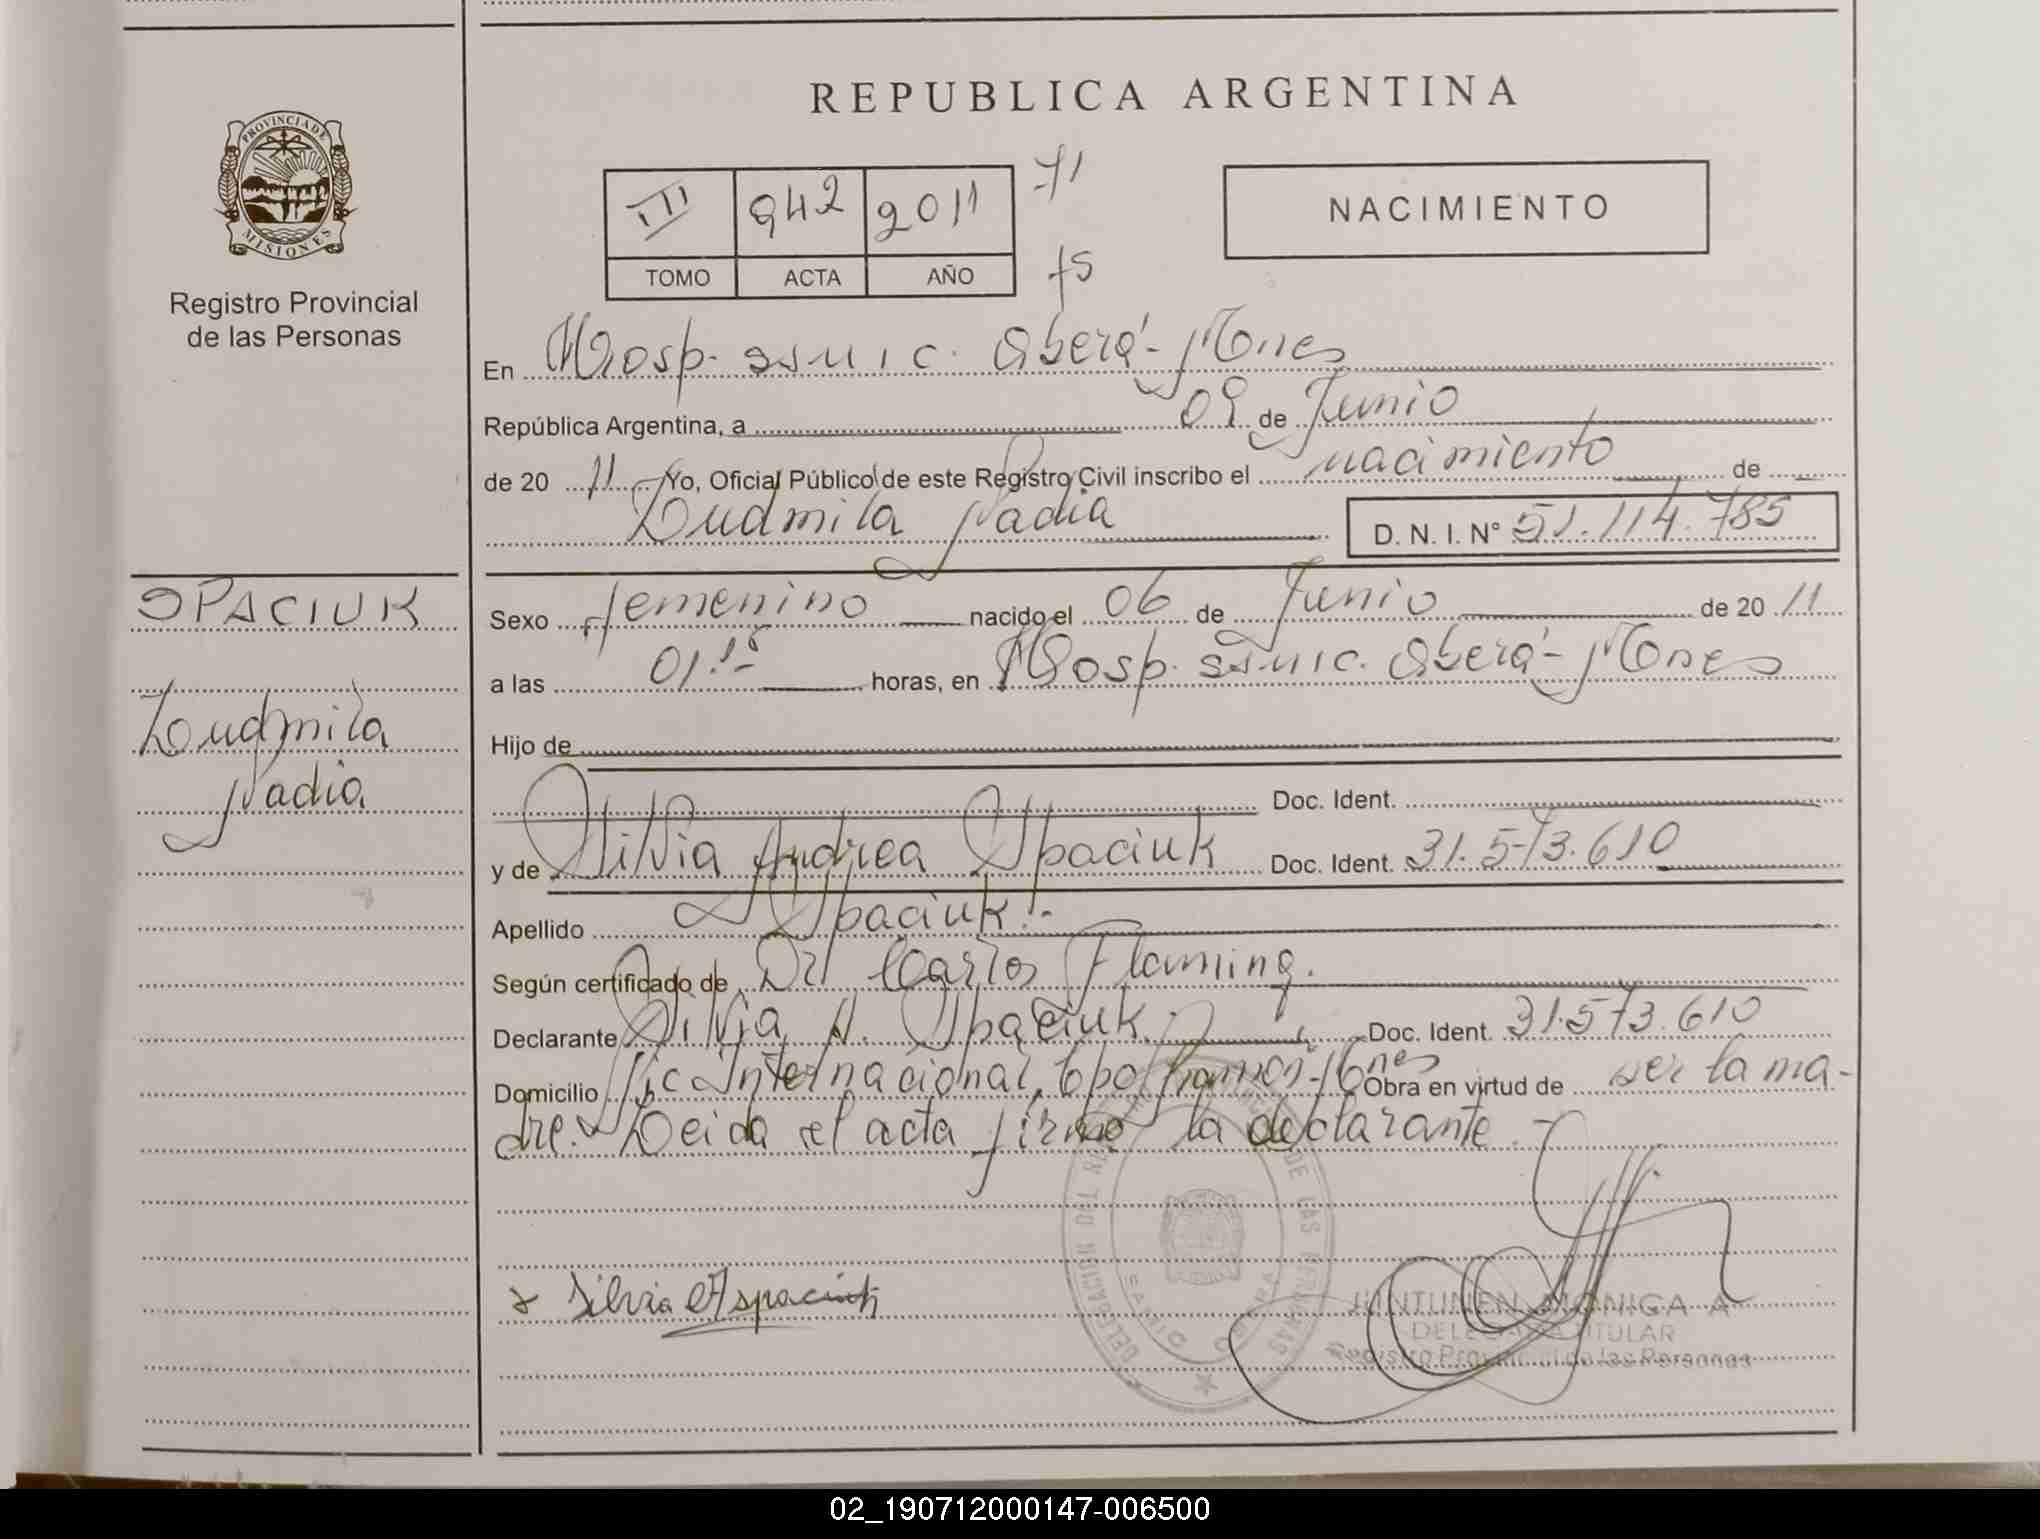 REPUBLICA ARGENTINA
PROVINCIA DE
MISIONES
Registro Provincial
de las Personas
III 942 2011 71
TOMO ACTA AÑO 75
NACIMIENTO
En Hosp. SSMIC. Oberá - Mones
República Argentina, a 09 de Junio
de 20 11 Yo, Oficial Público de este Registro Civil inscribo el nacimiento de
Ludmila Nadia D. N. I. N° 51.114.785
SPACIUK
Ludmila
Nadia
Sexo femenino nacido el 06 de Junio de 20 11
a las 01.15 horas, en Hosp. SSMIC. Oberá - Mones
Hijo de
Doc. Ident.
y de Silvia Andrea Spaciuk Doc. Ident. 31.573.610
Apellido Spaciuk.-
Según certificado de Dr Carlos Flaming.
Declarante Silvia A. Spaciuk. Doc. Ident. 31.573.610
Domicilio Internacional, Cpo Ramón - Mnes Obra en virtud de ser la ma-
dre. Leida el acta firma la declarante.-
Silvia A Spaciuk
JUNTUNEN MONICA A
DELEGADA TITULAR
Registro Provincial de las Personas
02_190712000147-006500